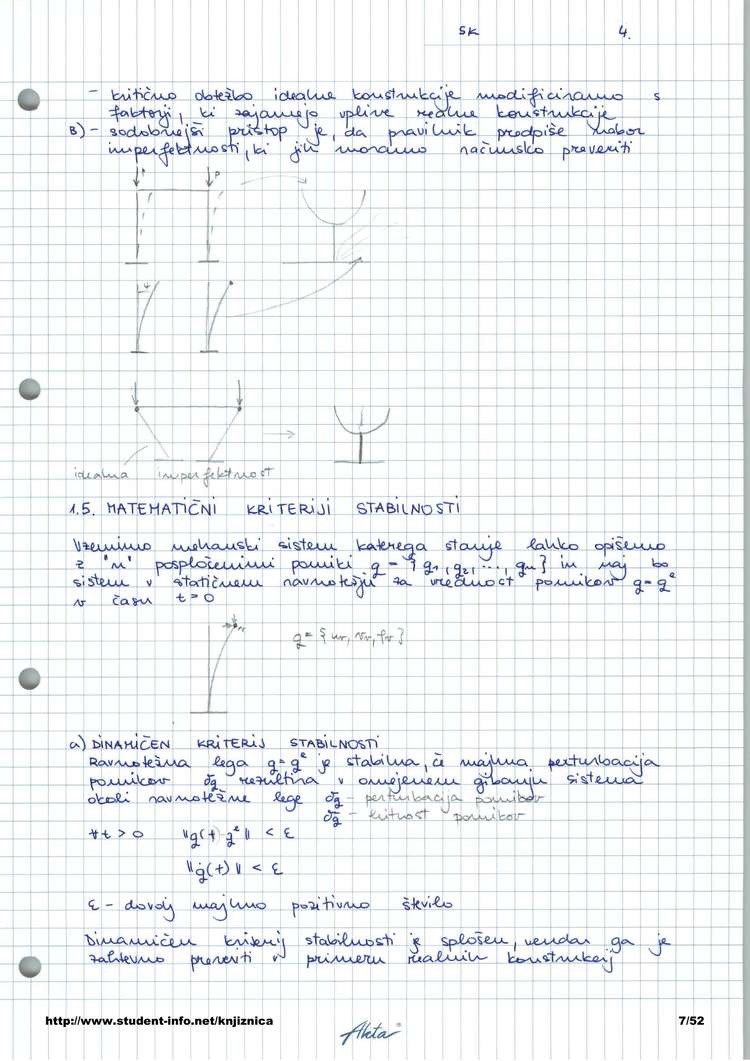 SK 4.
- kritično obtežbo idealne konstrukcije modificiramo s
faktorji, ki zajamejo vplive realne konstrukcije
B) - sodobnejši pristop je, da pravilnik predpiše nabor
imperfektnosti, ki jih moramo računsko preveriti
P P
φ
idealna imperfektnost
1.5. MATEMATIČNI KRITERIJI STABILNOSTI
Vzemimo mehanski sistem katerega stanje lahko opišemo
z "n" posplošenimi pomiki q = {q1, q2, ..., qn} in naj bo
sistem v statičnem ravnotežju za vrednost pomikov q = qe
v času t = 0
q = {ur, vr, fr}
a) DINAMIČEN KRITERIJ STABILNOSTI
Ravnotežna lega q = qe je stabilna, če majhna perturbacija
pomikov δq rezultira v omejenem gibanju sistema
okoli ravnotežne lege δq - perturbacija pomikov
δq̇ - hitrost pomikov
∀t > 0 ||q(t) - qe|| < ε
||q̇(t)|| < ε
ε - dovolj majhno pozitivno število
Dinamičen kriterij stabilnosti je splošen, vendar ga je
zahtevno preveriti v primeru realnih konstrukcij
http://www.student-info.net/knjiznica 7/52
Akta